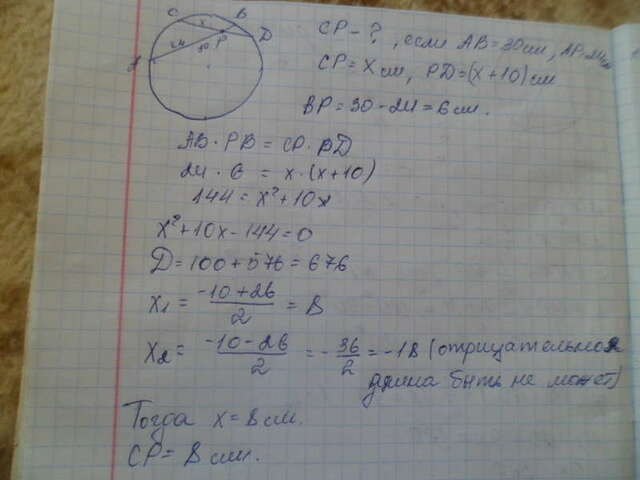 C x B
24 30 P D
A
CP - ? , если AB = 30 см, AP = 24 см
CP = x см, PD = (x + 10) см
BP = 30 - 24 = 6 см.
AB · PB = CP · PD
24 · 6 = x · (x + 10)
144 = x² + 10x
x² + 10x - 144 = 0
D = 100 + 576 = 676
x₁ = (-10 + 26)/2 = 8
x₂ = (-10 - 26)/2 = -36/2 = -18 (отрицательной
длина быть не может)
Тогда x = 8 см.
CP = 8 см.